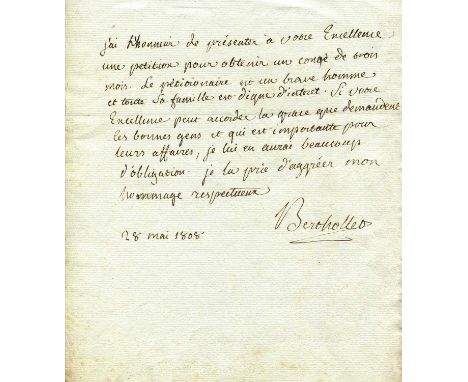 j'ai l'honneur de présenter a votre Excellence
une petition pour obtenir un congé de trois
mois. Le pétitionaire est un brave homme
et toute sa famille est digne d'interet. Si votre
Excellence peut accorder la grace que demandent
les bonnes gens et qui est importante pour
leurs affaires, je lui en aurai beaucoup
d'obligation je la prie d'aggréer mon
hommage respectueux
Berthollet
28 mai 1808